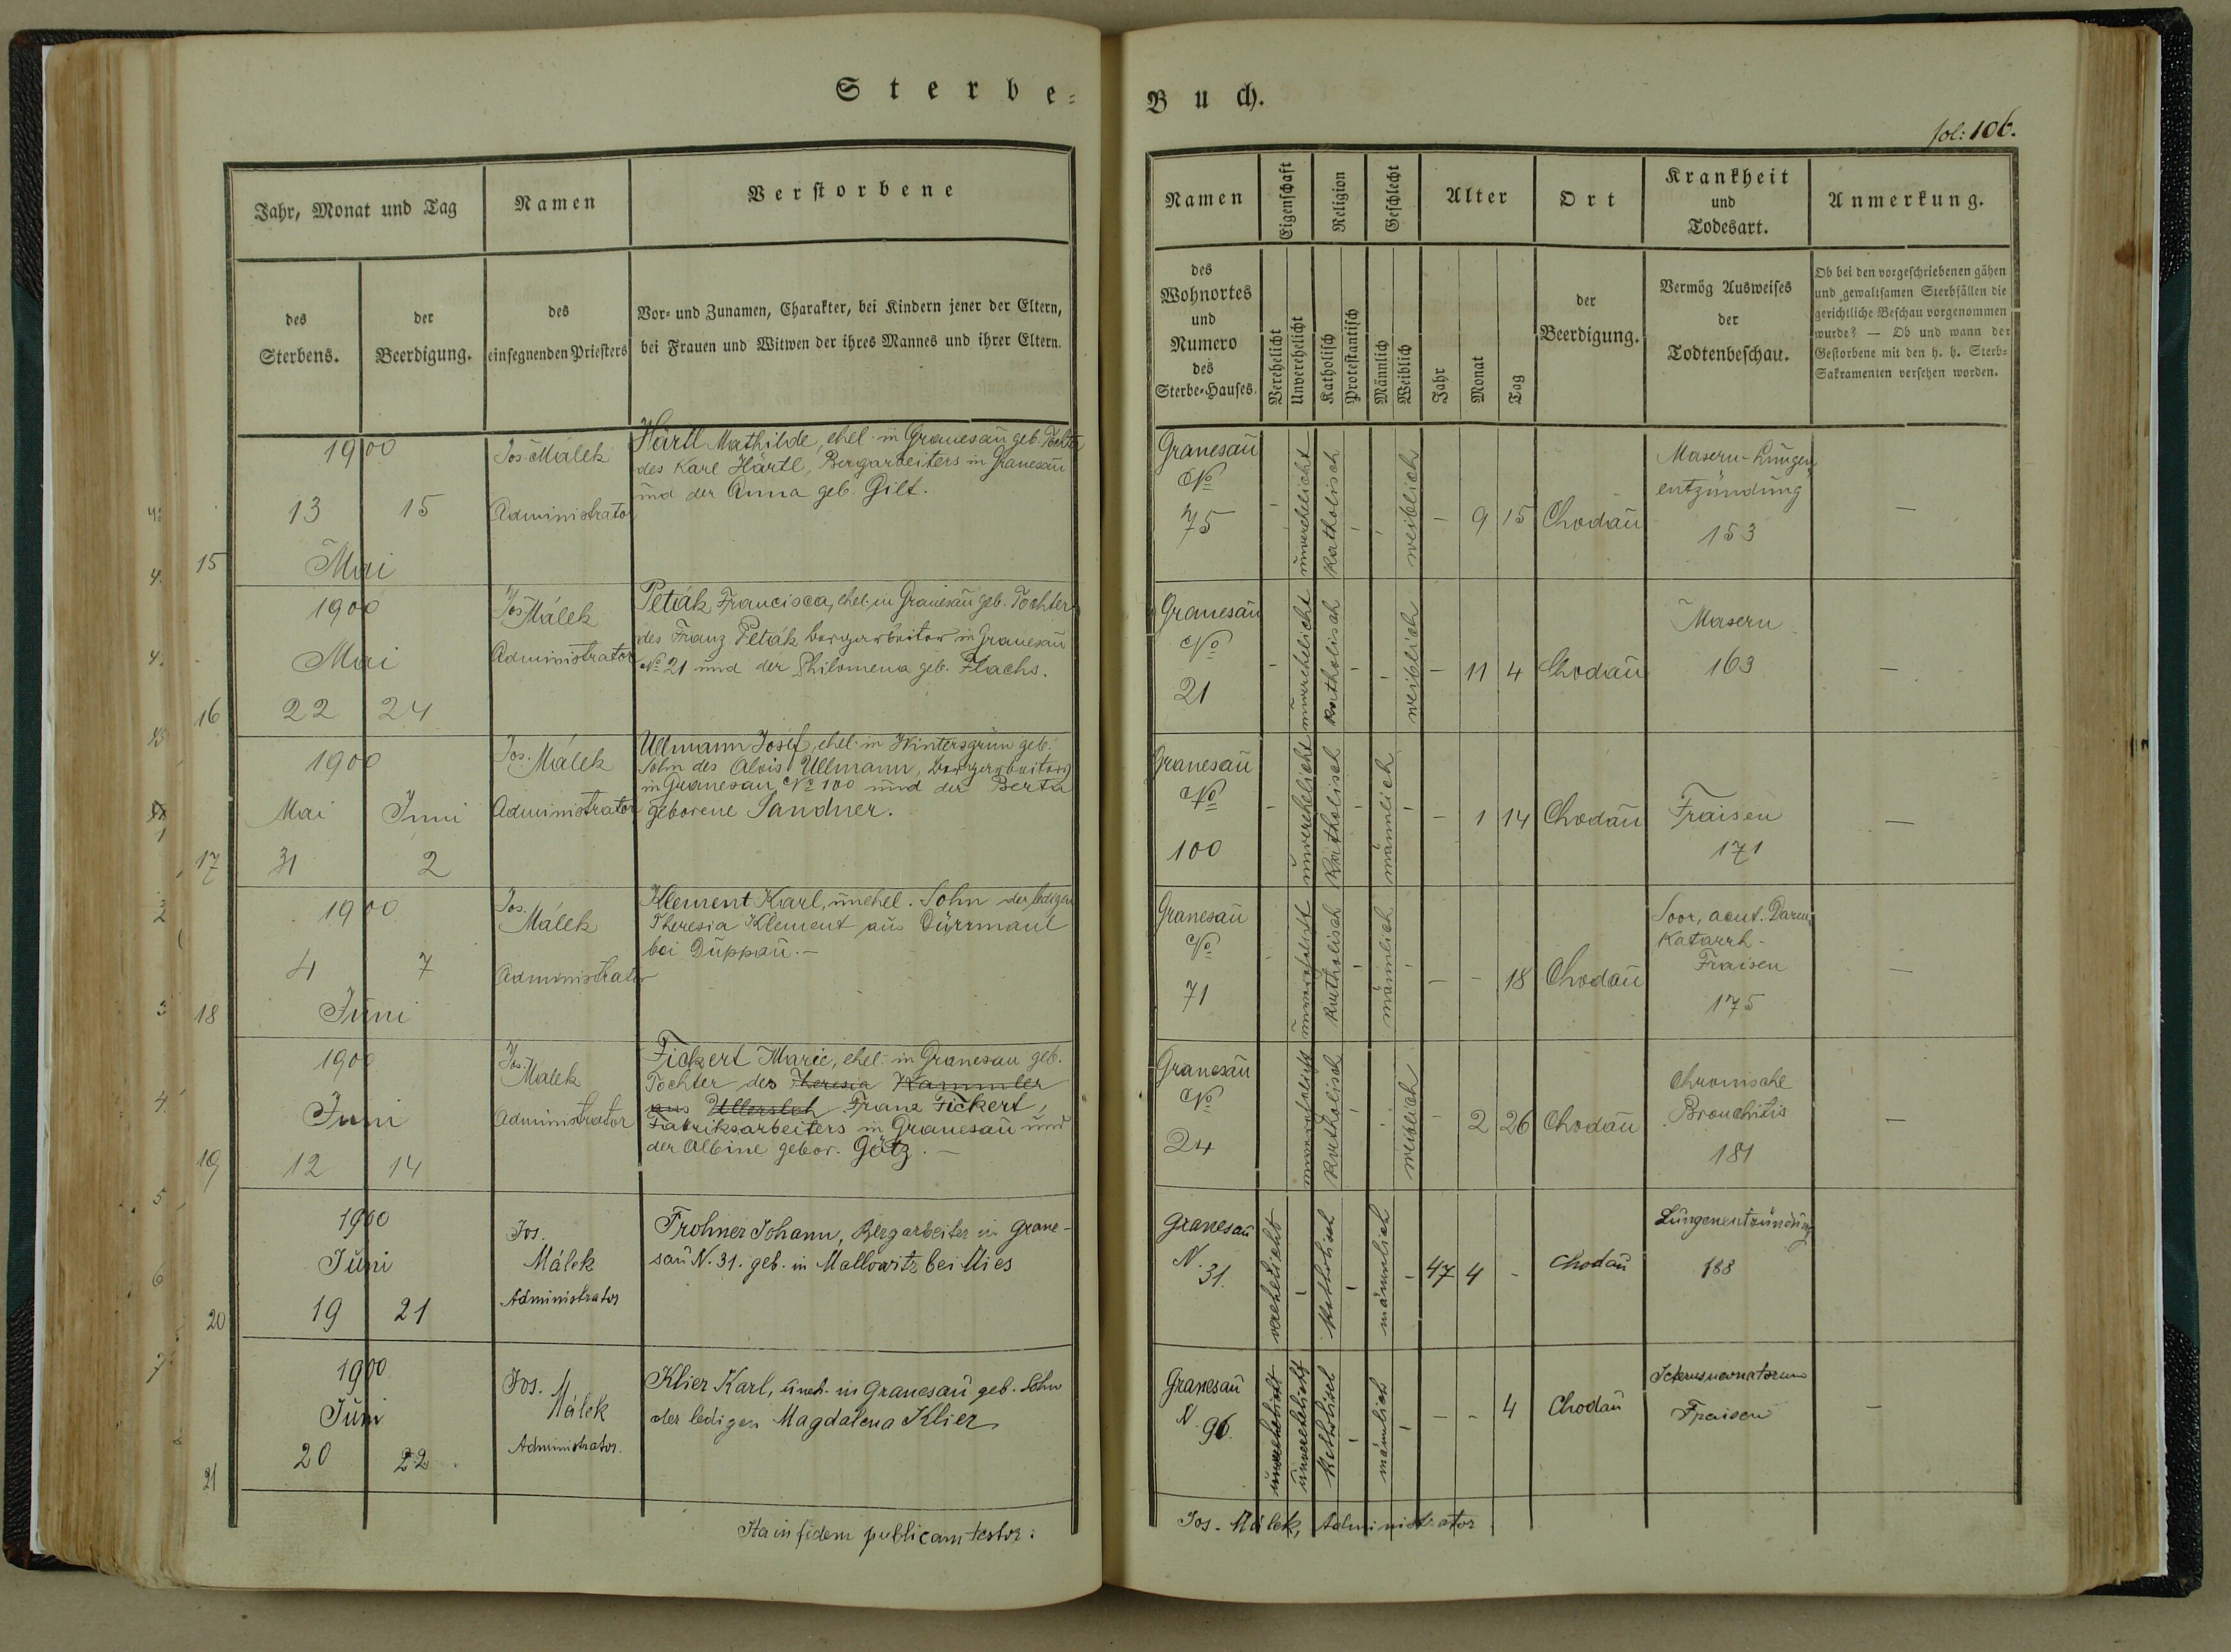 Sterbe=
Jahr, Monat und Tag
Namen
Verstorbene
des
Sterbens.
der
Beerdigung.
des
einsegnenden Priesters
Vor= und Zunamen, Charakter, bei Kindern jener der Eltern,
bei Frauen und Witwen der ihres Mannes und ihrer Eltern.
15
1900
13
15
Mai
Jos. Málek
Administrator
Härtl Mathilde, ehel. in Granesaŭ geb. Tochter
des Karl Härtl, Bergarbeiters in Granesaŭ
ŭnd der Anna geb. Gilt.
16
1900
Mai
22
24
Jos. Málek
Administrator
Peták Francisca, ehel. in Granesaŭ geb. Tochter
des Franz Peták Bergarbeiter in Granesaŭ
No 21 ŭnd der Philomena geb. Flachs.
17
1900
Mai
Juni
31
2
Jos. Málek
Administrator
Ullmann Josef, ehel. in Wintersgrün geb.
Sohn des Alois Ullmann, Bergarbeiters
in Granesau No 100 ŭnd der Berta
geborene Sandner.
18
1900
4
7
Jŭni
Jos.
Málek
Administrator
Klement Karl, ŭnehel. Sohn der ledigen
Theresia Klement aŭs Dürrmaul
bei Dŭppaŭ.—
19
1900
Juni
12
14
Jos.
Málek
Administrator
Fickert Marie, ehel. in Granesau geb.
Tochter des Theresia Kammler
aus Franz Fickert,
Fabriksarbeiters in Granesaŭ ŭnd
der Albine gebor. Götz.—
20
1900
Jŭni
19
21
Jos.
Málek
Administrator
Frohner Johann, Bergarbeiter in Grane-
saŭ N. 31. geb. in Mallowitz bei Mies
21
1900
Jŭni
20
22.
Jos.
Málek
Administrator.
Klier Karl, ŭneh. in Granesaŭ geb. Sohn
der ledigen Magdalena Klier
Ita in fidem publicam testor:
Buch.
fol: 106.
Namen
Eigenschaft
Religion
Geschlecht
Alter
Ort
Krankheit
und
Todesart.
Anmerkung.
des
Wohnortes
und
Numero
des
Sterbe=Hauses.
Verehelicht
Unverehelicht
Katholisch
Protestantisch
Männlich
Weiblich
Jahr
Monat
Tag
der
Beerdigung.
Vermög Ausweises
der
Todtenbeschau.
Ob bei den vorgeschriebenen gähen
und gewaltsamen Sterbfällen die
gerichtliche Beschau vorgenommen
wurde? — Ob und wann der
Gestorbene mit den h. h. Sterb=
Sakramenten versehen worden.
Granesaŭ
No
75
ŭnverehelicht
katholisch
weiblich
- 9 15
Chodaŭ
Masern-Lŭngen
entzündŭng
153
—
Granesaŭ
No
21
ŭnverehelicht
katholisch
weiblich
- 11 4
Chodaŭ
Masern
163
—
Granesaŭ
No
100
ŭnverehelicht
katholisch
männlich
- 1 14
Chodaŭ
Fraisen
171
—
Granesaŭ
No
71
unverehelicht
katholisch
männlich
- - 18
Chodaŭ
Soor, acut. Darm
Katarrh-
Fraisen
175
—
Granesaŭ
No
24
unverehelicht
katholisch
weiblich
- 2 26
Chodaŭ
Chronische
Bronchitis
181
—
Granesaŭ
N.
31.
verehelicht
katholisch
männlich
47 4 -
Chodaŭ
Lŭngenentzündŭng
188
Granesaŭ
N.
96.
ŭnverehelicht
ŭnverehelicht
katholisch
männlich
- - 4
Chodaŭ
Icterus neonatorum
Fraisen
—
Jos. Málek, Administrator